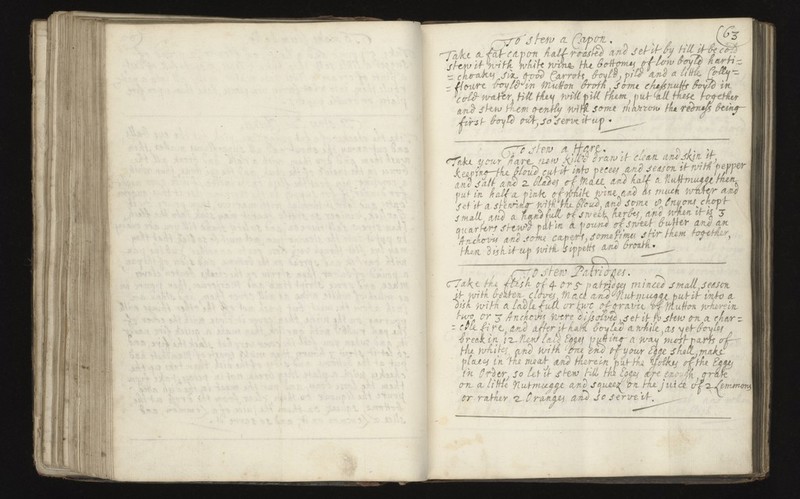 (63
To stew a Capon.
Take a fat capon half roasted and set it by till it be cold
stew it with white wine the bottomes of low boyld harti=
=choakes, six good Carrots, boyld, pild and a little Colly=
=floure boyld in Mutton broth, some chessnutts boyld in
cold water, till they will pill them, put all these together
and stew them gently with some marrow the redness being
first boyld out, so serve it up.
To stew a Hare.
Take your hare new kill'd draw it clean and skin it,
keeping the bloud cut it into peces and season it with pepper
and salt and 2 blades of Mace and half a Nuttmugge then
put in half a pinte of white wine and as much water and
set it a stewing with the bloud, and some Onyons chopt
small, and a handfull of sweet herbes, and when it is 3
quarters stew'd put in a pound of sweet butter and an
Anchovis and some capers, sometimes stir them together,
then dish it up with sippetts and broath.
To stew Patridges.
Take the flesh of 4 or 5 patridges minced small, season
it with beaten cloves, Mace and Nutmugge put it into a
dish with a Ladle full or two of gravie of Mutton wherein
two or 3 Anchovis were dissolved, set it to stew on a char=
=cole fire, and after it hath boyled a while, as yet boyles
break in 12 New laid Egges putting a way most parts of
the whites, and with one end of your Egge shell, make
places in the meat and therein put the Yolkes of the Egges
in Order, so let it stew till the Egges are enough, grate
on a little Nutmugge and squeez on the juice of 2 Lemmons
or rather 2 Oranges and so serve it.